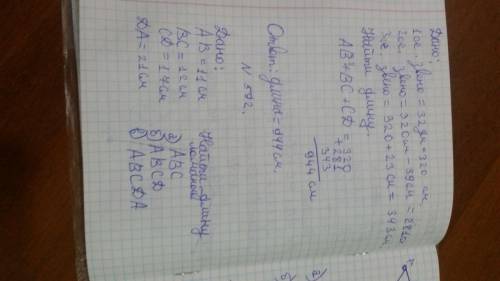 Дано:
1ое звено = 32дм = 320 см.
2ое звено = 320см - 39см = 281см
3ье звено = 320 + 23см = 343см.
Найти длину:
AB + BC + CD = 320
+ 281
343
944 см
Ответ: длина = 944см.
N 592.
Дано:
AB = 11см
BC = 12см
CD = 17см
DA = 21см
Найти длину
ломаной
а) ABC
б) ABCD
в) ABCDA
а)
б)